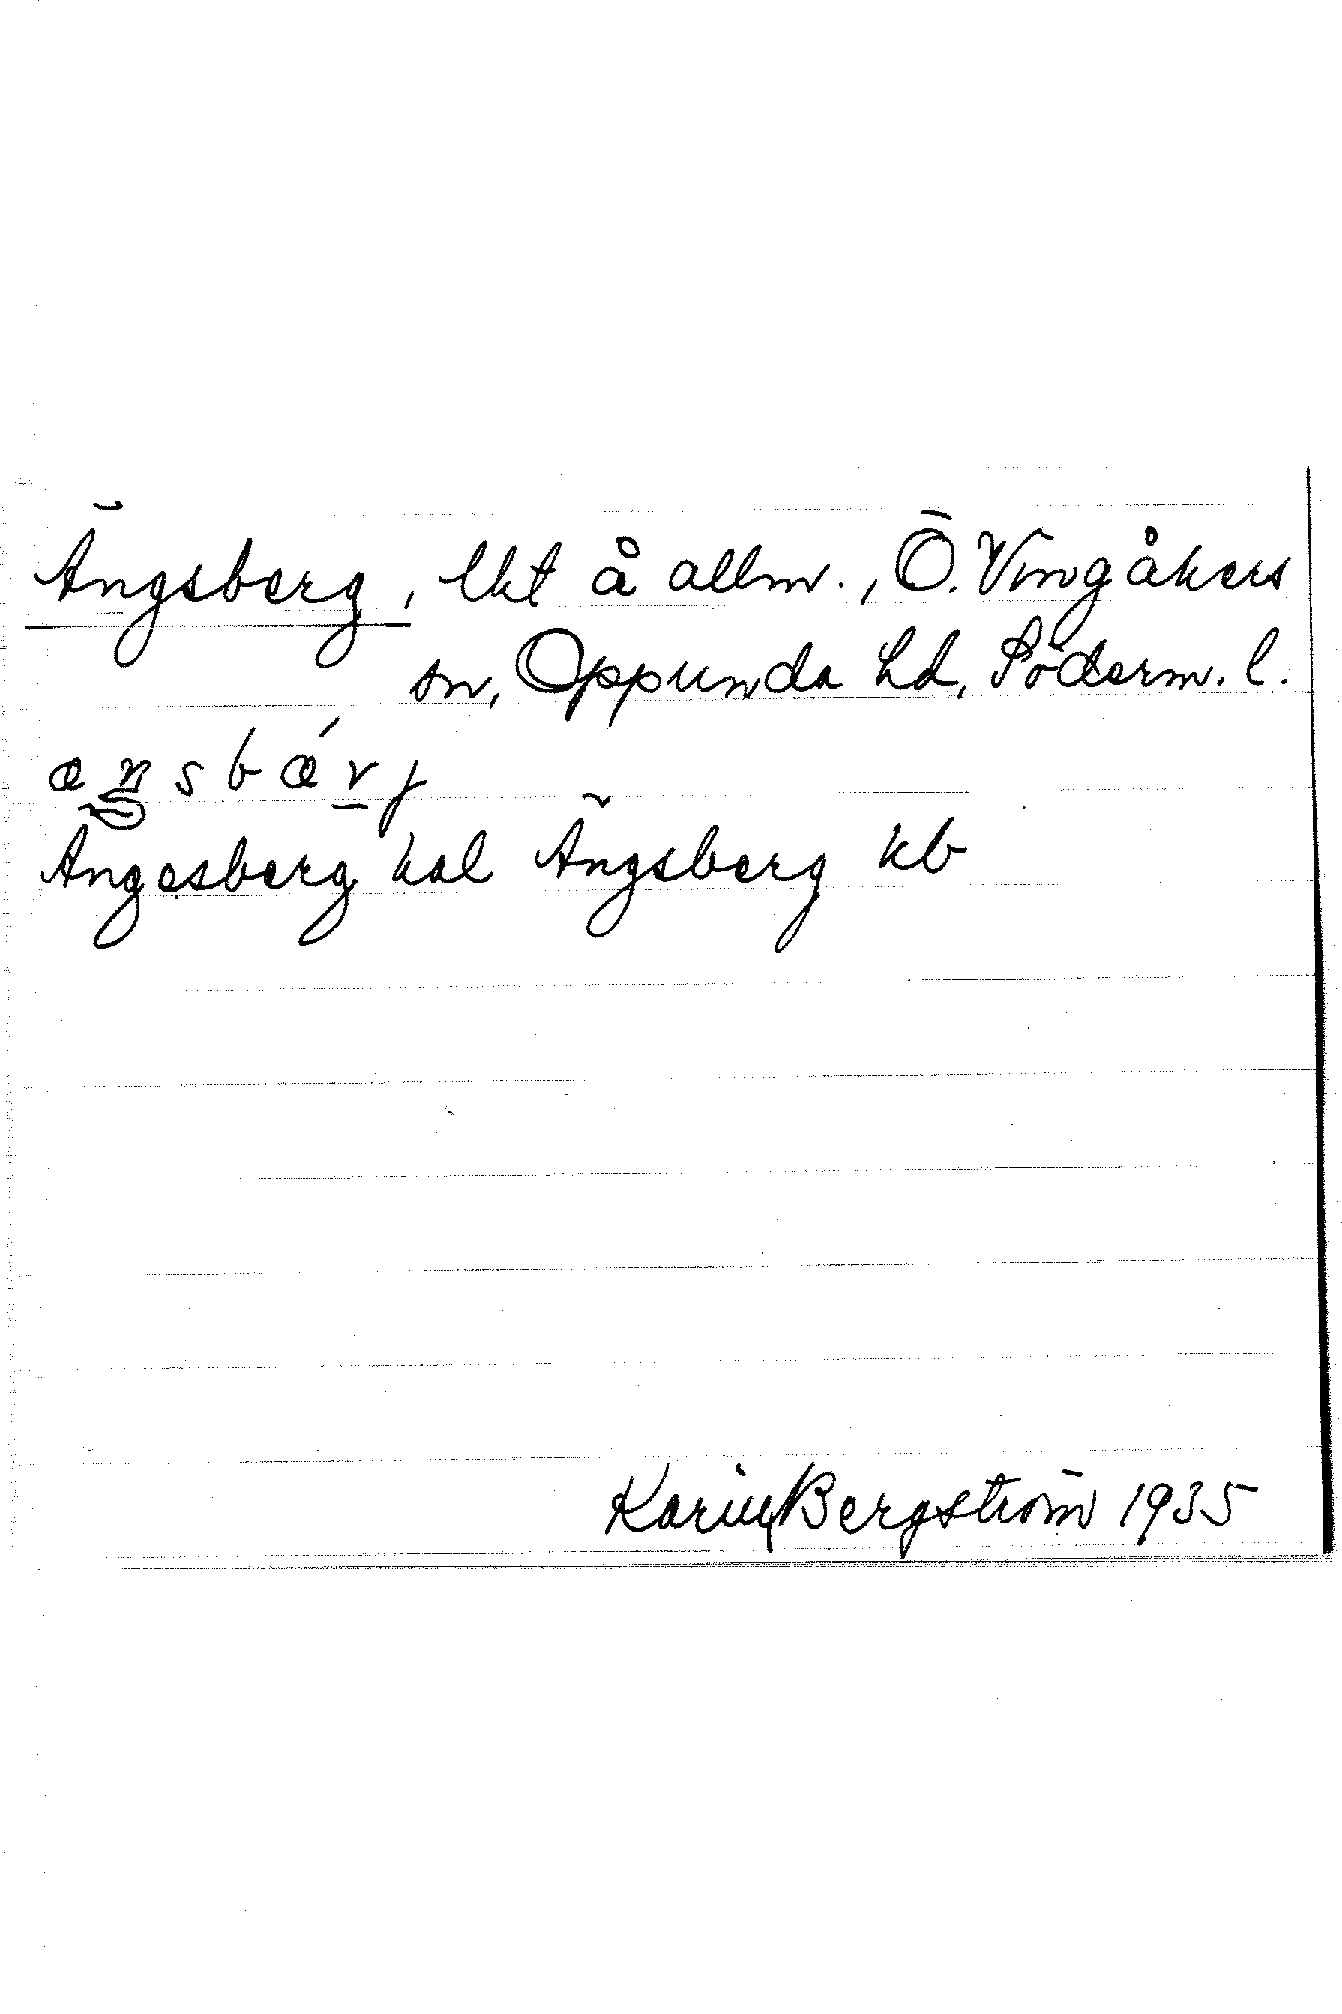 Ängsberg, lht å allm., Ö. Vingåkers
sn, Oppunda hd, Söderm. l.
æŋsbǽrj
Ängesberg hal Ängsberg kb
Karin Bergström 1935